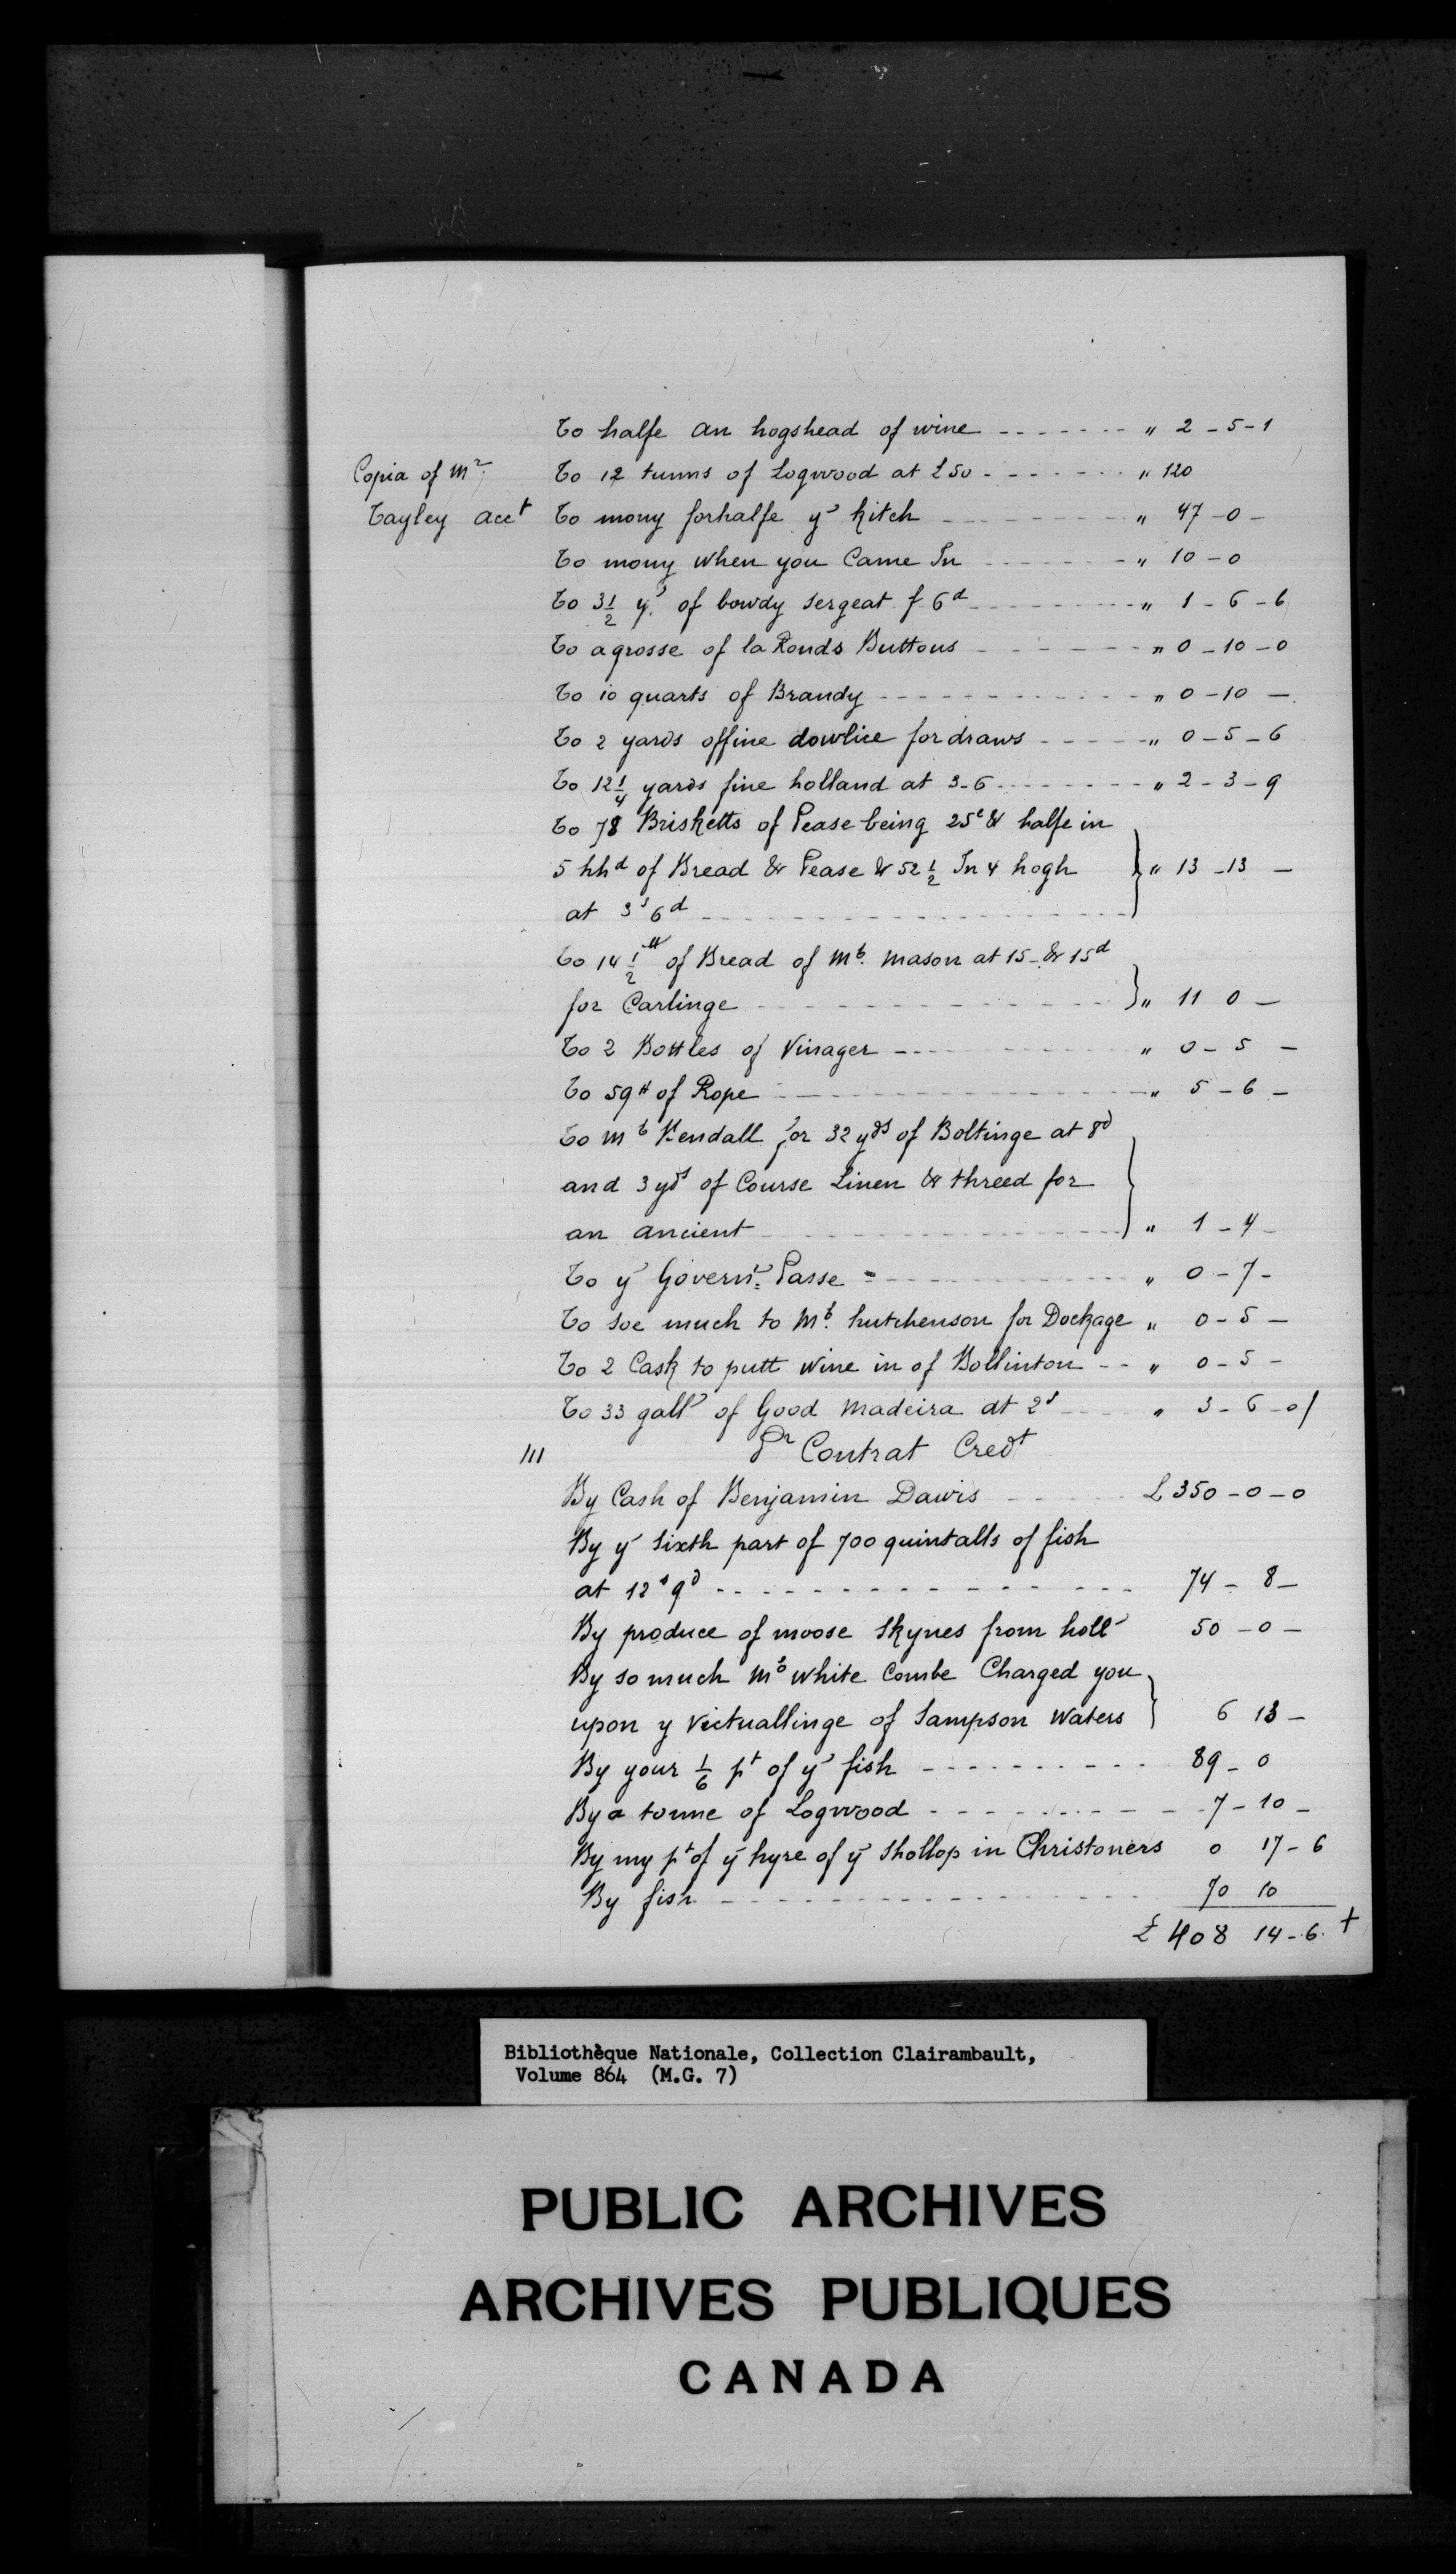 To halfe an hogshead of wine ------- " 2 - 5 - 1
Copia of Mr. To 12 tunns of Logwood at £50 ------- " 120
Tayley Acct To mony forhalfe y' Kitch --------- " 47 - 0 -
To mony when you Came In ------- " 10 - 0
To 3 1/2 y.s of bowdy sergeat f 6d --------- " 1 - 6 - 6
To agrosse of la Ronds Buttons ------- " 0 - 10 - 0
To 10 quarts of Brandy ------------ " 0 - 10 -
To 2 yards offine dowlice fordraws ----- " 0 - 5 - 6
To 12 1/4 yards fine holland at 3-6 -------- " 2 - 3 - 9
To 78 Brisketts of Pease being 25e & halfe in
5 hhd of Bread & Pease & 52 1/2 In 4 hogh } " 13 - 13 -
at 3s 6d ------------------
To 14 1/2 # of Bread of Mr. Mason at 15 - & 15d
for Carlinge --------------- } " 11 0 -
To 2 Bottles of Vinager ---------- " 0 - 5 -
To 59# of Rope ---------------- " 5 - 6 -
To Mr Kendall for 32 yds of Boltinge at 8d
and 3 yds of Course Linen & threed for
an ancient ---------------- } " 1 - 4 -
To y' Govern.rs Passe ------------ " 0 - 7 -
To soe much to Mr. hutchenson for Dockage " 0 - 5 -
To 2 Cask to putt wine in of Bollinton -- " 0 - 5 -
To 33 gall' of Good Madeira at 2s ---- " 3 - 6 - 0/
111 Pr Contrat Credt
By Cash of Benjamin Dawis ---- £ 350 - 0 - 0
By y' Sixth part of 700 quintalls of fish
at 12s 9d ------------- 74 - 8 -
By produce of moose Skynes from holl' 50 - 0 -
By so much Mr White Combe Charged you
upon y Victuallinge of Sampson Waters } 6 13 -
By your 1/6 pt of y' fish ---------- 89 - 0
By a tonne of Logwood ---------- 7 - 10 -
By my pt of y' hyre of y' Shollop in Christoners 0 17 - 6
By fish ----------------- 70 10
£ 408 14 - 6. +
Bibliothèque Nationale, Collection Clairambault,
Volume 864 (M.G. 7)
PUBLIC ARCHIVES
ARCHIVES PUBLIQUES
CANADA